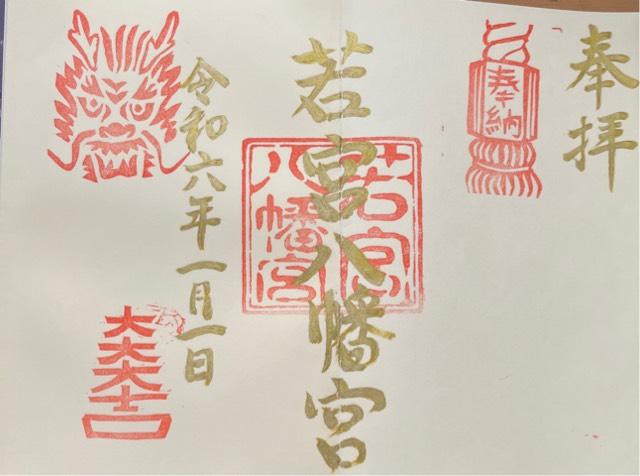 奉拝
奉納
若宮八幡宮
若宮
八幡宮
令和六年一月一日